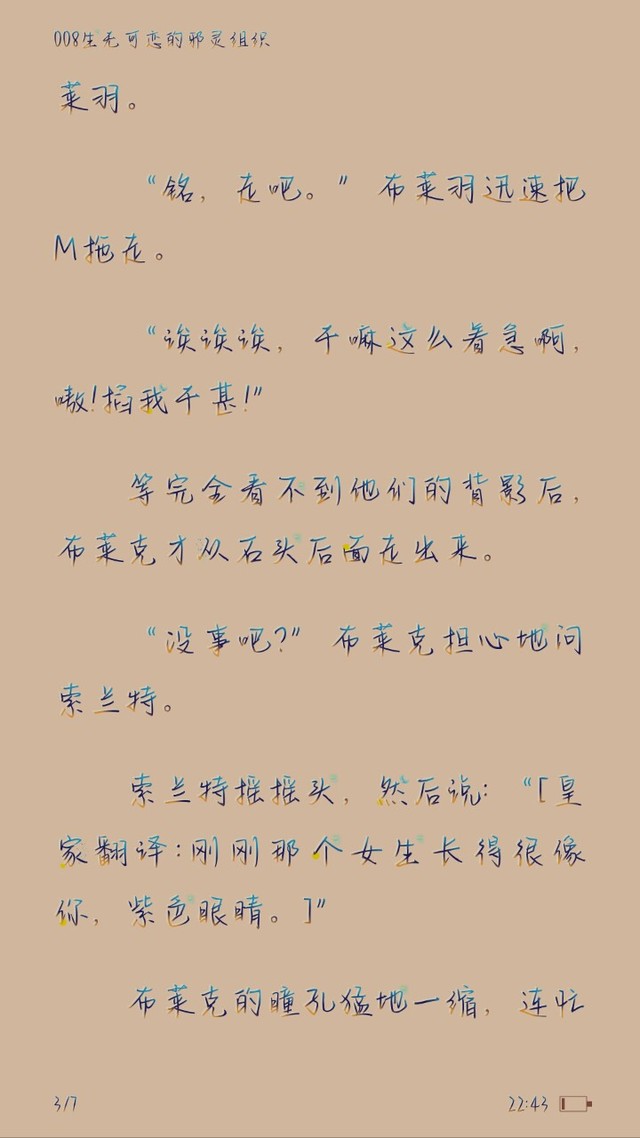 008生无可恋的邪灵组织
莱羽。
“铭，走吧。”布莱羽迅速把
M拖走。
“诶诶诶，干嘛这么着急啊，
嗷！掐我干甚！”
等完全看不到他们的背影后，
布莱克才从石头后面走出来。
“没事吧？”布莱克担心地问
索兰特。
索兰特摇摇头，然后说：“[皇
家翻译：刚刚那个女生长得很像
你，紫色眼睛。]”
布莱克的瞳孔猛地一缩，连忙
3/7
22:43